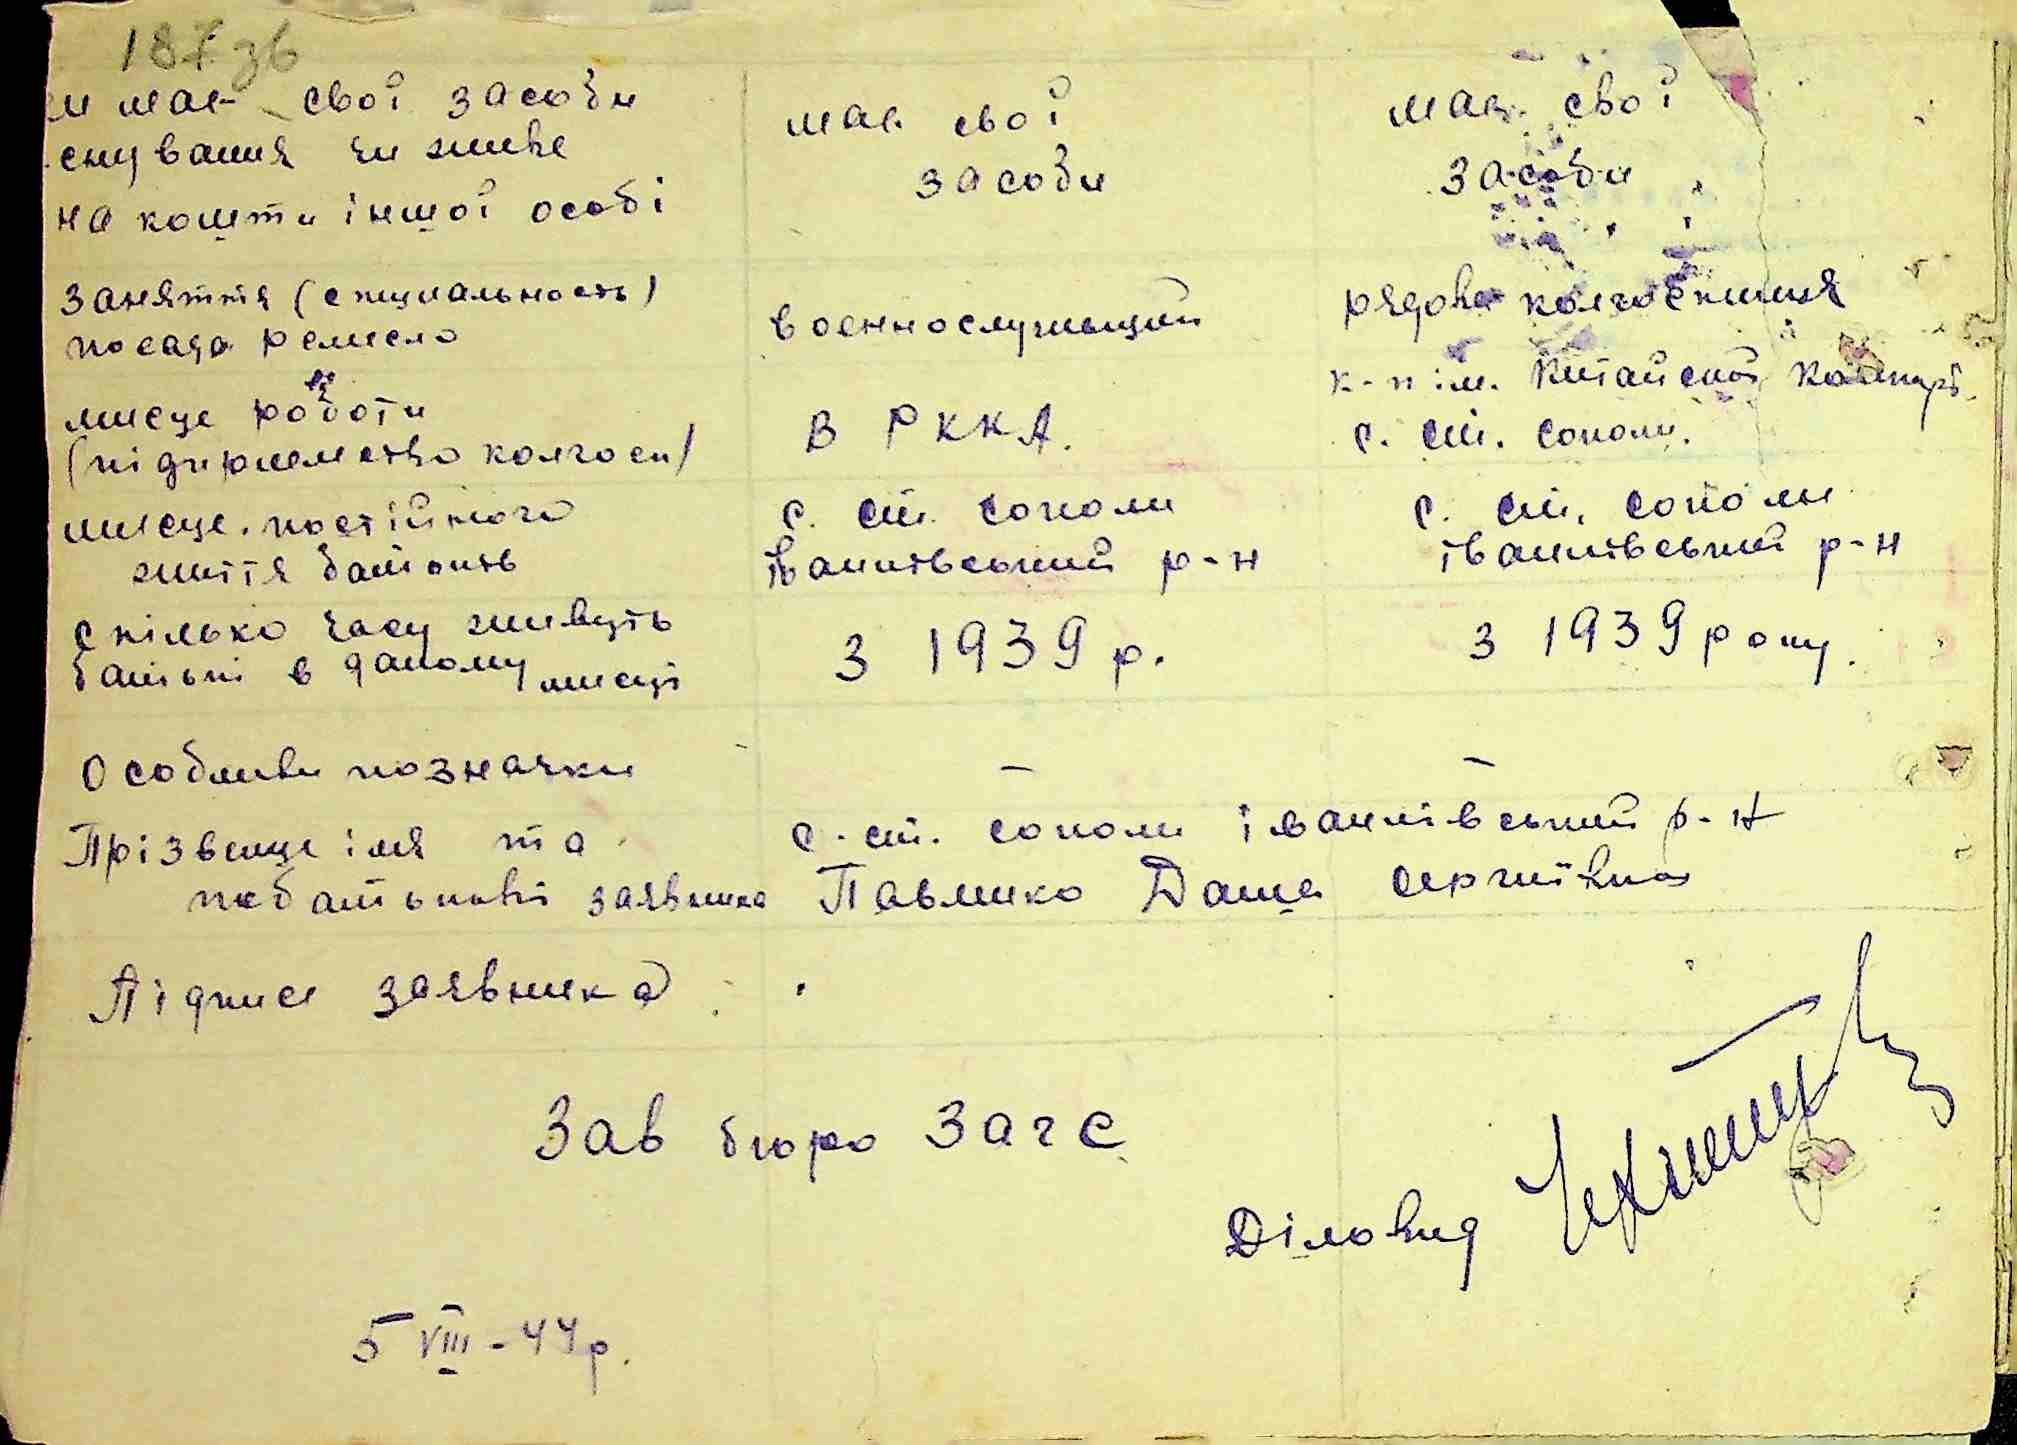 187 зв
и має свої засоби
снування чи живе
на кошти іншої особі
має свої
засоби
має свої
засоби
Заняття (специальность)
посада ремесло
военнослужыщий
рядова колгоспниця
мисце роботи
(підприемство колгосп)
В РККА.
к-п ім. Китайской Комуні
с. ст. соколи.
мисце постійного
життя батьків
с. ст. соколи
іванківський р-н
с. ст. соколи
іванківський р-н
Скілько часу живуть
батькі в даному мисці
з 1939 р.
з 1939 року.
Особливи позначки
–
–
Прізвеще імя та
побатькові заявника
с. ст. соколи іванківський р-н
Павленко Даша Сергиївна
Підпис заявника
Зав бюро Загс
Діловид
5 VIII - 44 р.